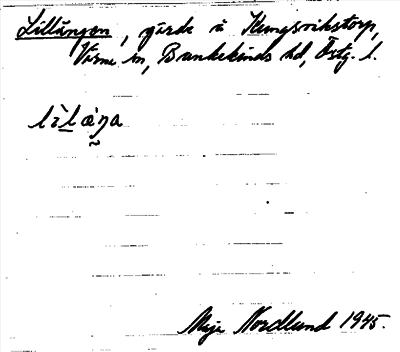 Lillängen, gärde å Kungsvikstorp,
Värne sn, Bankekinds hd, Östg. l.
lìlæ̀ŋa
Maja Nordlund 1945.